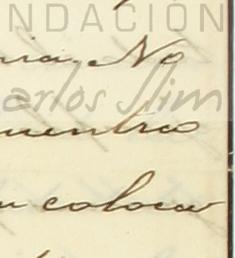 NDACIÓN
ria. No
Carlos Slim
cuentra
colocar